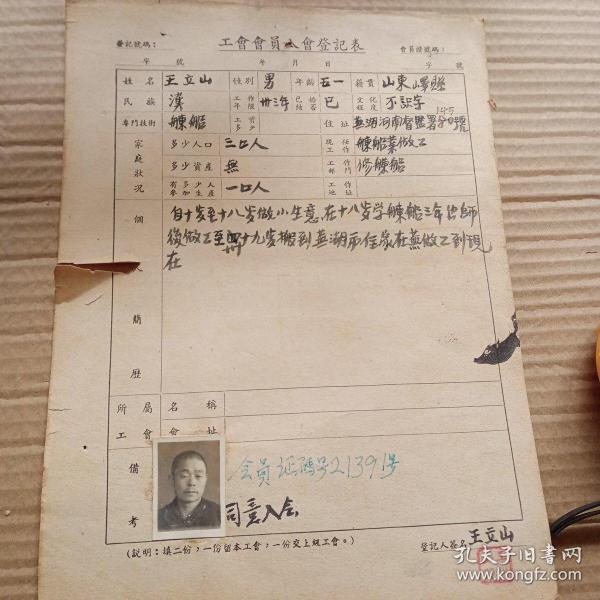 工會會員入會登記表
登記號碼：　會員證號碼：
字　號　年　月　日　字　號
姓名　王立山　性別　男　年齡　五一　籍貫　山東嶧縣
民族　漢　工作年限　卅三年　已婚否　已　文化程度　不識字
專門技術　　工資多少　　住址　蕪湖河南
家庭狀況　多少人口　三口人　現任工作　做工
多少資產　無　工作部門　修
有多少人參加生產　一口人　工作地址
個人簡歷　自十岁至十八岁做小生意,在十八岁学　三年出師
後做工至　十九岁搬到蕪湖市住家在蕪做工到現
在
所屬工會　名稱
會址
備考　会员証號号21391号
同意入会
登記人簽名　王立山
(說明：填二份，一份留本工會，一份交上級工會。)
孔夫子旧书网